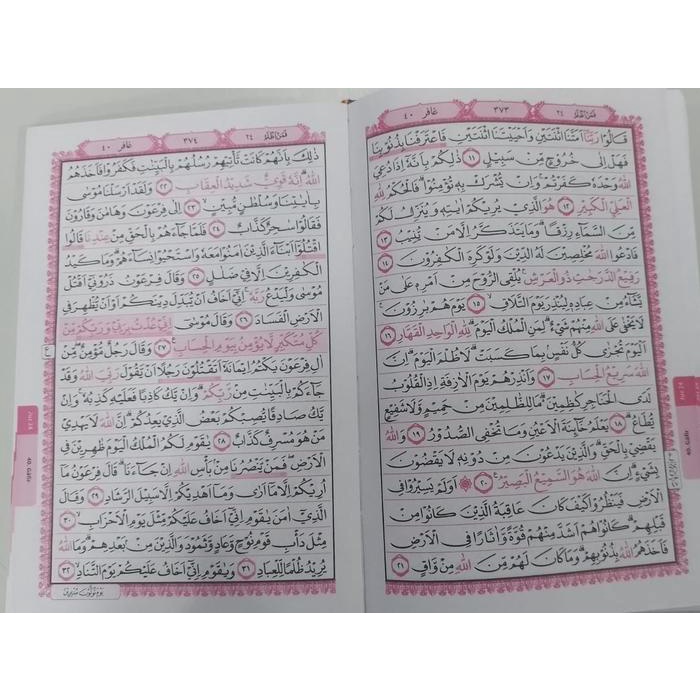 فَمَنْ اَظْلَمُ ٢٤
٣٧٣
غافر ٤٠
قَالُوْا رَبَّنَآ اَمَتَّنَا اثْنَتَيْنِ وَاَحْيَيْتَنَا اثْنَتَيْنِ فَاعْتَرَفْنَا بِذُنُوْبِنَا
فَهَلْ اِلٰى خُرُوْجٍ مِّنْ سَبِيْلٍ ١١ ذٰلِكُمْ بِاَنَّهٗٓ اِذَا دُعِيَ
اللّٰهُ وَحْدَهٗ كَفَرْتُمْۚ وَاِنْ يُّشْرَكْ بِهٖ تُؤْمِنُوْاۗ فَالْحُكْمُ لِلّٰهِ
الْعَلِيِّ الْكَبِيْرِ ١٢ هُوَ الَّذِيْ يُرِيْكُمْ اٰيٰتِهٖ وَيُنَزِّلُ لَكُمْ
مِّنَ السَّمَاۤءِ رِزْقًاۗ وَمَا يَتَذَكَّرُ اِلَّا مَنْ يُّنِيْبُ ١٣
فَادْعُوا اللّٰهَ مُخْلِصِيْنَ لَهُ الدِّيْنَ وَلَوْ كَرِهَ الْكٰفِرُوْنَ ١٤
رَفِيْعُ الدَّرَجٰتِ ذُو الْعَرْشِۚ يُلْقِى الرُّوْحَ مِنْ اَمْرِهٖ عَلٰى مَنْ
يَّشَاۤءُ مِنْ عِبَادِهٖ لِيُنْذِرَ يَوْمَ التَّلَاقِۙ ١٥ يَوْمَ هُمْ بَارِزُوْنَ ەۚ
لَا يَخْفٰى عَلَى اللّٰهِ مِنْهُمْ شَيْءٌۗ لِمَنِ الْمُلْكُ الْيَوْمَۗ لِلّٰهِ الْوَاحِدِ الْقَهَّارِ ١٦
اَلْيَوْمَ تُجْزٰى كُلُّ نَفْسٍۢ بِمَا كَسَبَتْۗ لَا ظُلْمَ الْيَوْمَۗ اِنَّ
اللّٰهَ سَرِيْعُ الْحِسَابِ ١٧ وَاَنْذِرْهُمْ يَوْمَ الْاٰزِفَةِ اِذِ الْقُلُوْبُ
لَدَى الْحَنَاجِرِ كٰظِمِيْنَۗ مَا لِلظّٰلِمِيْنَ مِنْ حَمِيْمٍ وَّلَا شَفِيْعٍ
يُّطَاعُۗ ١٨ يَعْلَمُ خَاۤىِٕنَةَ الْاَعْيُنِ وَمَا تُخْفِى الصُّدُوْرُ ١٩ وَاللّٰهُ
يَقْضِيْ بِالْحَقِّۗ وَالَّذِيْنَ يَدْعُوْنَ مِنْ دُوْنِهٖ لَا يَقْضُوْنَ
بِشَيْءٍۗ اِنَّ اللّٰهَ هُوَ السَّمِيْعُ الْبَصِيْرُ ٢٠ ۞ اَوَلَمْ يَسِيْرُوْا فِى
الْاَرْضِ فَيَنْظُرُوْا كَيْفَ كَانَ عَاقِبَةُ الَّذِيْنَ كَانُوْا مِنْ
قَبْلِهِمْۗ كَانُوْا هُمْ اَشَدَّ مِنْهُمْ قُوَّةً وَّاٰثَارًا فِى الْاَرْضِ
فَاَخَذَهُمُ اللّٰهُ بِذُنُوْبِهِمْۗ وَمَا كَانَ لَهُمْ مِّنَ اللّٰهِ مِنْ وَّاقٍ ٢١
فَمَنْ اَظْلَمُ ٢٤
٣٧٤
غافر ٤٠
ذٰلِكَ بِاَنَّهُمْ كَانَتْ تَّأْتِيْهِمْ رُسُلُهُمْ بِالْبَيِّنٰتِ فَكَفَرُوْا فَاَخَذَهُمُ
اللّٰهُ ۗاِنَّهٗ قَوِيٌّ شَدِيْدُ الْعِقَابِ ٢٢ وَلَقَدْ اَرْسَلْنَا مُوْسٰى
بِاٰيٰتِنَا وَسُلْطٰنٍ مُّبِيْنٍۙ ٢٣ اِلٰى فِرْعَوْنَ وَهَامٰنَ وَقَارُوْنَ
فَقَالُوْا سٰحِرٌ كَذَّابٌ ٢٤ فَلَمَّا جَاۤءَهُمْ بِالْحَقِّ مِنْ عِنْدِنَا قَالُوا
اقْتُلُوْٓا اَبْنَاۤءَ الَّذِيْنَ اٰمَنُوْا مَعَهٗ وَاسْتَحْيُوْا نِسَاۤءَهُمْۗ وَمَا كَيْدُ
الْكٰفِرِيْنَ اِلَّا فِيْ ضَلٰلٍ ٢٥ وَقَالَ فِرْعَوْنُ ذَرُوْنِيْٓ اَقْتُلْ
مُوْسٰى وَلْيَدْعُ رَبَّهٗۚ اِنِّيْٓ اَخَافُ اَنْ يُّبَدِّلَ دِيْنَكُمْ اَوْ اَنْ يُّظْهِرَ فِى
الْاَرْضِ الْفَسَادَ ٢٦ وَقَالَ مُوْسٰىٓ اِنِّيْ عُذْتُ بِرَبِّيْ وَرَبِّكُمْ مِّنْ
كُلِّ مُتَكَبِّرٍ لَّا يُؤْمِنُ بِيَوْمِ الْحِسَابِ ٢٧ وَقَالَ رَجُلٌ مُّؤْمِنٌۖ مِّنْ
اٰلِ فِرْعَوْنَ يَكْتُمُ اِيْمَانَهٗٓ اَتَقْتُلُوْنَ رَجُلًا اَنْ يَّقُوْلَ رَبِّيَ اللّٰهُ وَقَدْ
جَاۤءَكُمْ بِالْبَيِّنٰتِ مِنْ رَّبِّكُمْۗ وَاِنْ يَّكُ كَاذِبًا فَعَلَيْهِ كَذِبُهٗۚ وَاِنْ
يَّكُ صَادِقًا يُّصِبْكُمْ بَعْضُ الَّذِيْ يَعِدُكُمْۚ اِنَّ اللّٰهَ لَا يَهْدِيْ
مَنْ هُوَ مُسْرِفٌ كَذَّابٌ ٢٨ يٰقَوْمِ لَكُمُ الْمُلْكُ الْيَوْمَ ظٰهِرِيْنَ فِى
الْاَرْضِۖ فَمَنْ يَّنْصُرُنَا مِنْۢ بَأْسِ اللّٰهِ اِنْ جَاۤءَنَاۗ قَالَ فِرْعَوْنُ مَآ
اُرِيْكُمْ اِلَّا مَآ اَرٰى وَمَآ اَهْدِيْكُمْ اِلَّا سَبِيْلَ الرَّشَادِ ٢٩ وَقَالَ
الَّذِيْٓ اٰمَنَ يٰقَوْمِ اِنِّيْٓ اَخَافُ عَلَيْكُمْ مِّثْلَ يَوْمِ الْاَحْزَابِۙ ٣٠
مِثْلَ دَأْبِ قَوْمِ نُوْحٍ وَّعَادٍ وَّثَمُوْدَ وَالَّذِيْنَ مِنْۢ بَعْدِهِمْۗ وَمَا اللّٰهُ
يُرِيْدُ ظُلْمًا لِّلْعِبَادِ ٣١ وَيٰقَوْمِ اِنِّيْٓ اَخَافُ عَلَيْكُمْ يَوْمَ التَّنَادِۙ ٣٢
يَوْمَ تُوَلُّوْنَ مُدْبِرِيْنَ